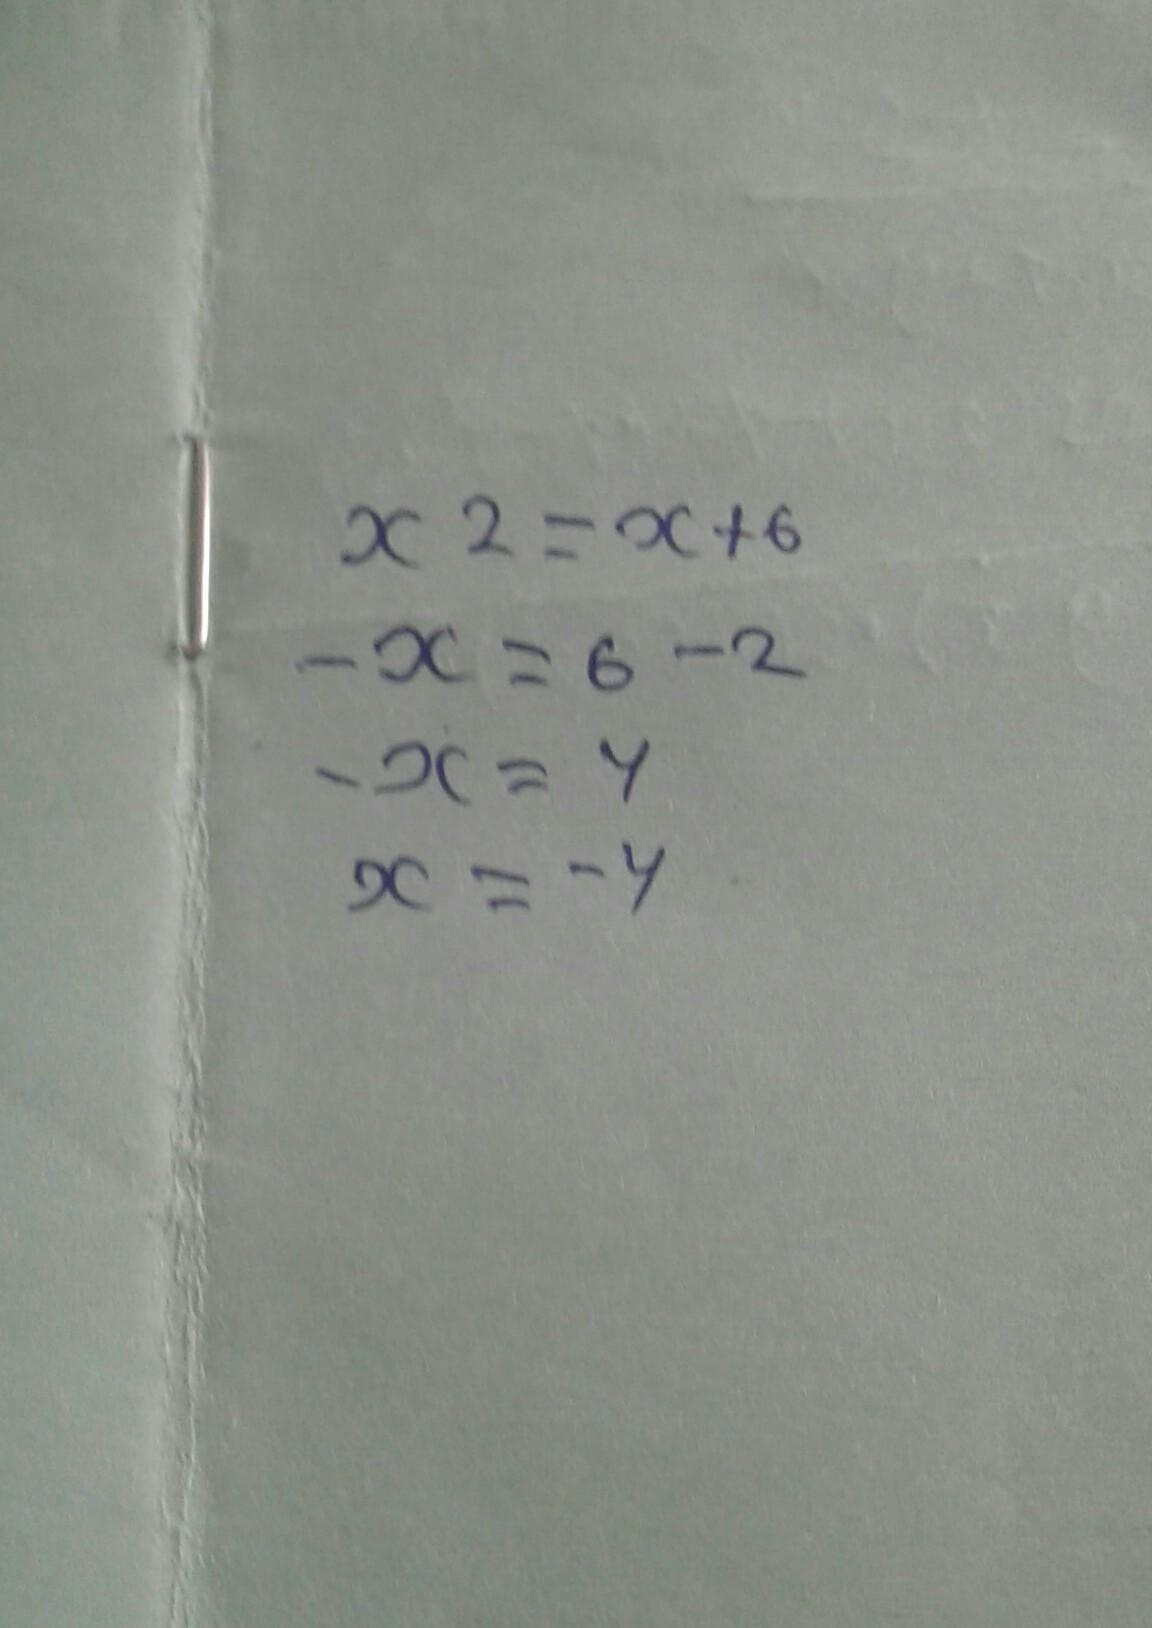 x 2 = x + 6
- x = 6 - 2
- x = 4
x = - 4